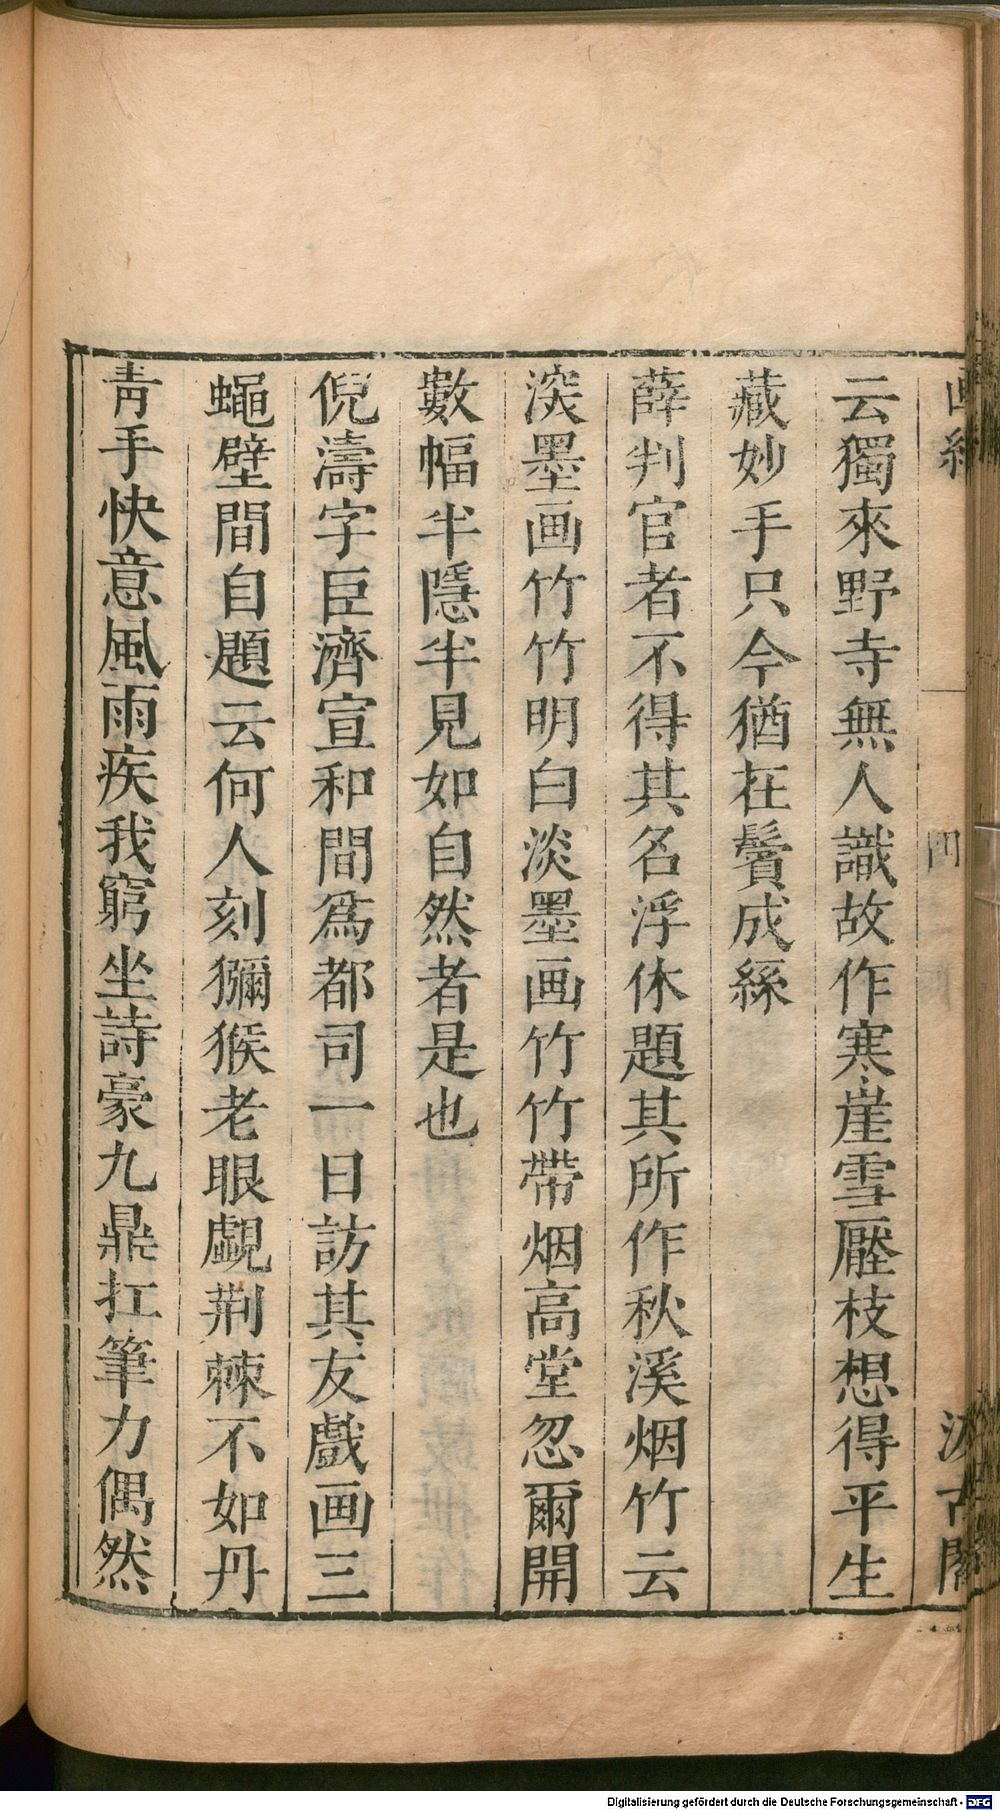 云獨來野寺無人識故作寒崖雪壓枝想得平生
藏妙手只今猶在鬢成絲
薛判官者不得其名浮休題其所作秋溪烟竹云
深墨画竹竹明白淡墨画竹竹帶烟高堂忽爾開
數幅半隱半見如自然者是也
倪濤字巨濟宣和間爲都司一日訪其友戲画三
蠅壁間自題云何人刻獼猴老眼覷荆棘不如丹
靑手快意風雨疾我窮坐詩豪九鼎扛筆力偶然
Digitalisierung gefördert durch die Deutsche Forschungsgemeinschaft - DFG